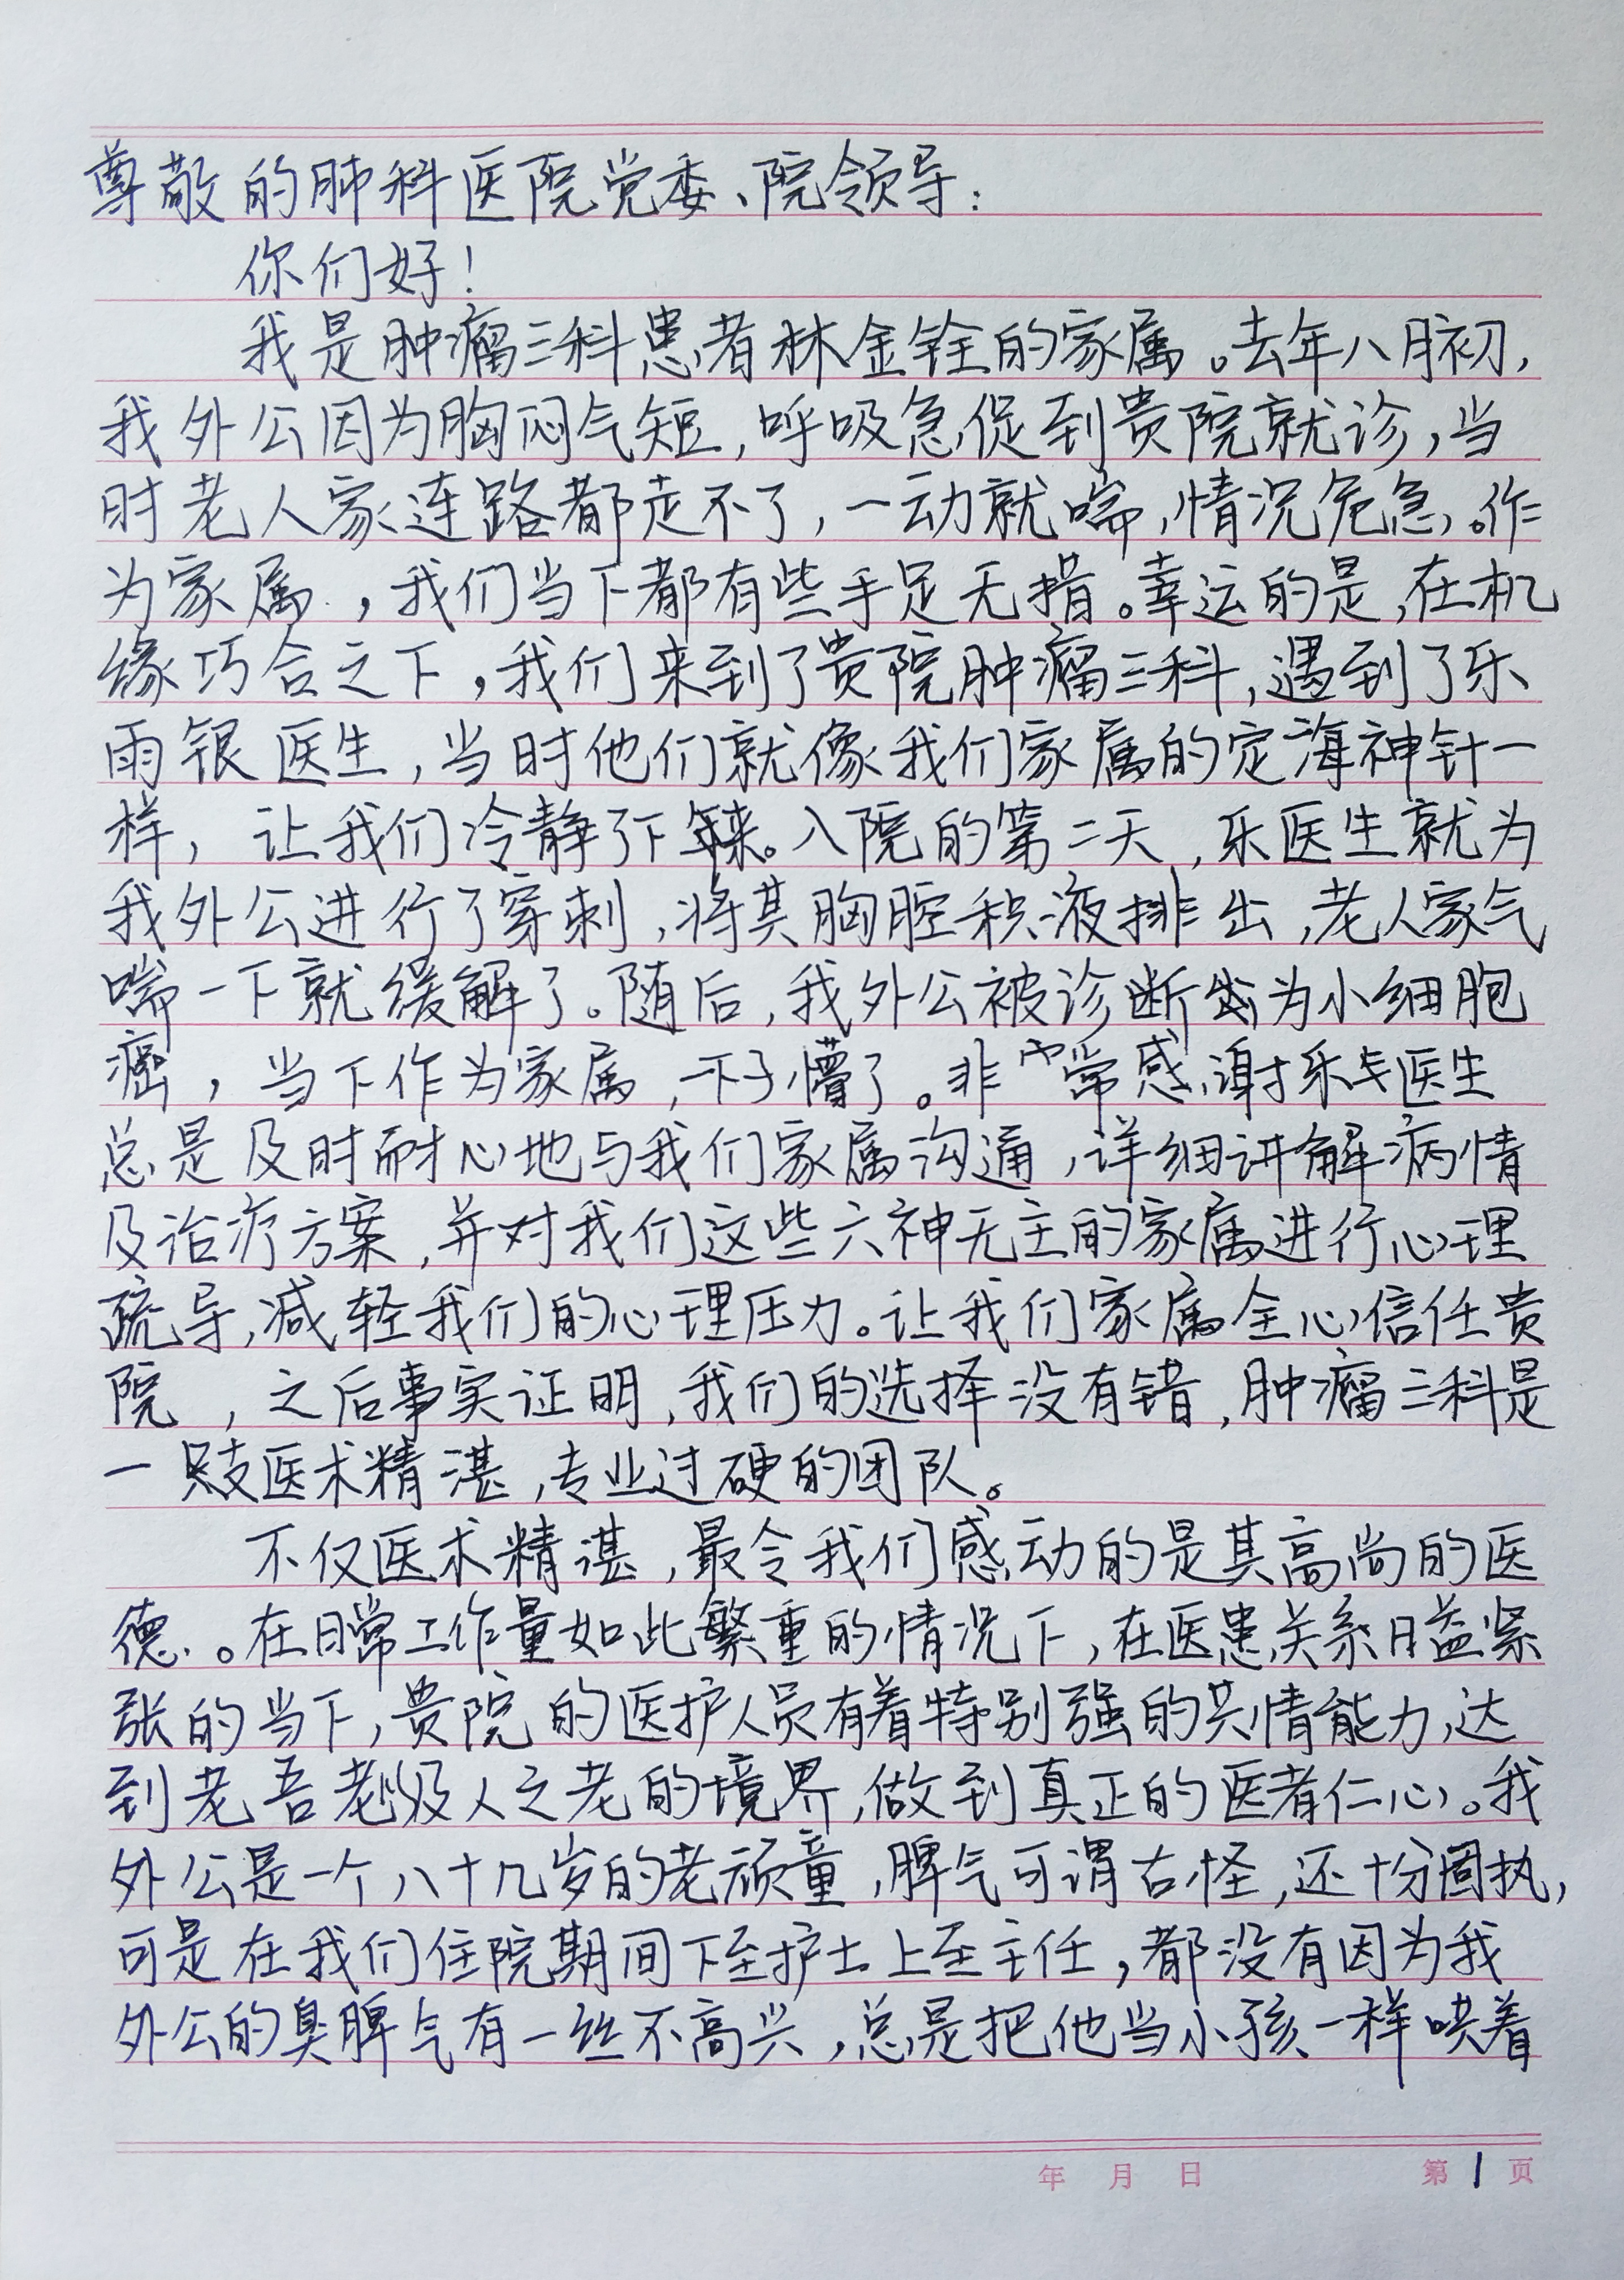 尊敬的肺科医院党委、院领导：
你们好！
我是肿瘤三科患者林金铨的家属。去年八月初，
我外公因为胸闷气短，呼吸急促到贵院就诊，当
时老人家连路都走不了，一动就喘，情况危急。作
为家属，我们当下都有些手足无措。幸运的是，在机
缘巧合之下，我们来到了贵院肿瘤三科，遇到了乐
雨银医生，当时他们就像我们家属的定海神针一
样，让我们冷静了下来。入院的第二天，乐医生就为
我外公进行了穿刺，将其胸腔积液排出，老人家气
喘一下就缓解了。随后，我外公被诊断为小细胞
癌，当下作为家属，一下子懵了。非常感谢乐医生
总是及时耐心地与我们家属沟通，详细讲解病情
及治疗方案，并对我们这些六神无主的家属进行心理
疏导，减轻我们的心理压力。让我们家属全心信任贵
院，之后事实证明，我们的选择没有错，肿瘤三科是
一支医术精湛，专业过硬的团队。
不仅医术精谌，最令我们感动的是其高尚的医
德。在日常工作量如此繁重的情况下，在医患关系日益紧
张的当下，贵院的医护人员有着特别强的共情能力，达
到老吾老以及人之老的境界，做到真正的医者仁心。我
外公是一个八十几岁的老顽童，脾气可谓古怪，还十分固执，
可是在我们住院期间下至护士上至主任，都没有因为我
外公的臭脾气有一丝不高兴，总是把他当小孩一样哄着
年 月 日 第1页